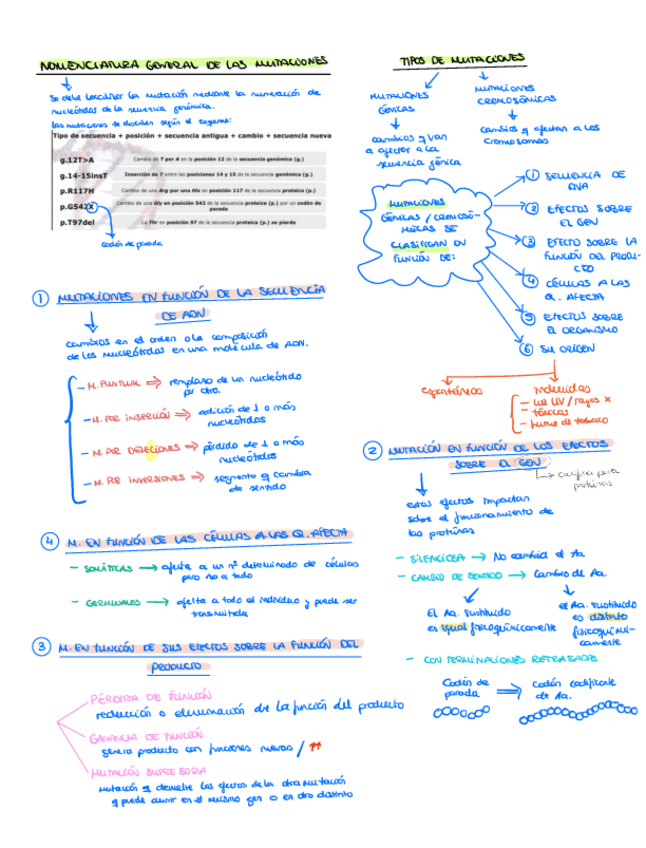 NOMENCLATURA GENERAL DE LAS MUTACIONES
Se debe localizar la mutación mediante la numeración de
nucleótidos de la secuencia genómica.
Las mutaciones se describen según el esquema:
Tipo de secuencia + posición + secuencia antigua + cambio + secuencia nueva
g.12T>A Cambio de T por A en posición 12 de la secuencia genómica (g.)
g.14-15insT Inserción de T entre las posiciones 14 y 15 de la secuencia genómica (g.)
p.R117H Cambio de una Arg por una His en posición 117 de la secuencia proteica (p.)
p.G542X Cambio de una Gly en posición 542 de la secuencia proteica (p.) por un codón de
parada
p.T97del La Thr en posición 97 de la secuencia proteica (p.) se pierde
codón de parada
TIPOS DE MUTACIONES
MUTACIONES
GÉNICAS
cambios q van
a afectar a la
secuencia génica
MUTACIONES
CROMOSÓMICAS
cambios q afectan a los
cromosomas
MUTACIONES
GÉNICAS / CROMOSÓ-
MICAS SE
CLASIFICAN EN
FUNCIÓN DE:
1 SECUENCIA DE
DNA
2 EFECTOS SOBRE
EL GEN
3 EFECTO SOBRE LA
FUNCIÓN DEL PRODU-
CTO
4 CÉLULAS A LAS
Q. AFECTA
5 EFECTOS SOBRE
EL ORGANISMO
6 SU ORIGEN
espontáneas
inducidas
- luz UV / rayos x
- tóxicos
- humo de tabaco
1 MUTACIONES EN FUNCIÓN DE LA SECUENCIA
DE ADN
cambios en el orden o la composición
de los nucleótidos en una molécula de ADN.
- M. PUNTUAL ⇒ remplazo de un nucleótido
por otro.
- M. POR INSERCIÓN ⇒ adición de 1 o más
nucleótidos
- M. POR DELECIONES ⇒ pérdida de 1 o más
nucleótidos
- M. POR INVERSIONES ⇒ segmento q cambia
de sentido
4 M. EN FUNCIÓN DE LAS CÉLULAS A LAS Q. AFECTA
- SOMÁTICAS → afecta a un nº determinado de células
pero no a todo
- GERMINALES → afecta a todo el individuo y puede ser
transmitida
3 M. EN FUNCIÓN DE SUS EFECTOS SOBRE LA FUNCIÓN DEL
PRODUCTO
PÉRDIDA DE FUNCIÓN
reducción o eliminación de la función del producto
GANANCIA DE FUNCIÓN
genera producto con funciones nuevas / ↑↑
MUTACIÓN SUPRESORA
mutación q
los efectos de la otra mutación
q puede ocurrir en el mismo gen o en otro distinto
2 MUTACIÓN EN FUNCIÓN DE LOS EFECTOS
SOBRE EL GEN
codifica para
proteínas
estos efectos impactan
sobre el funcionamiento de
las proteínas
- SILENCIOSA → No cambia el Aa
- CAMBIO DE SENTIDO → Cambio de Aa.
El Aa. sustituido
es igual fisicoquímicamente
el Aa. sustituido
es distinto
fisicoquími-
camente
- CON TERMINACIONES RETRASADAS
Codón de
parada
⇒ codón codificante
de Aa.